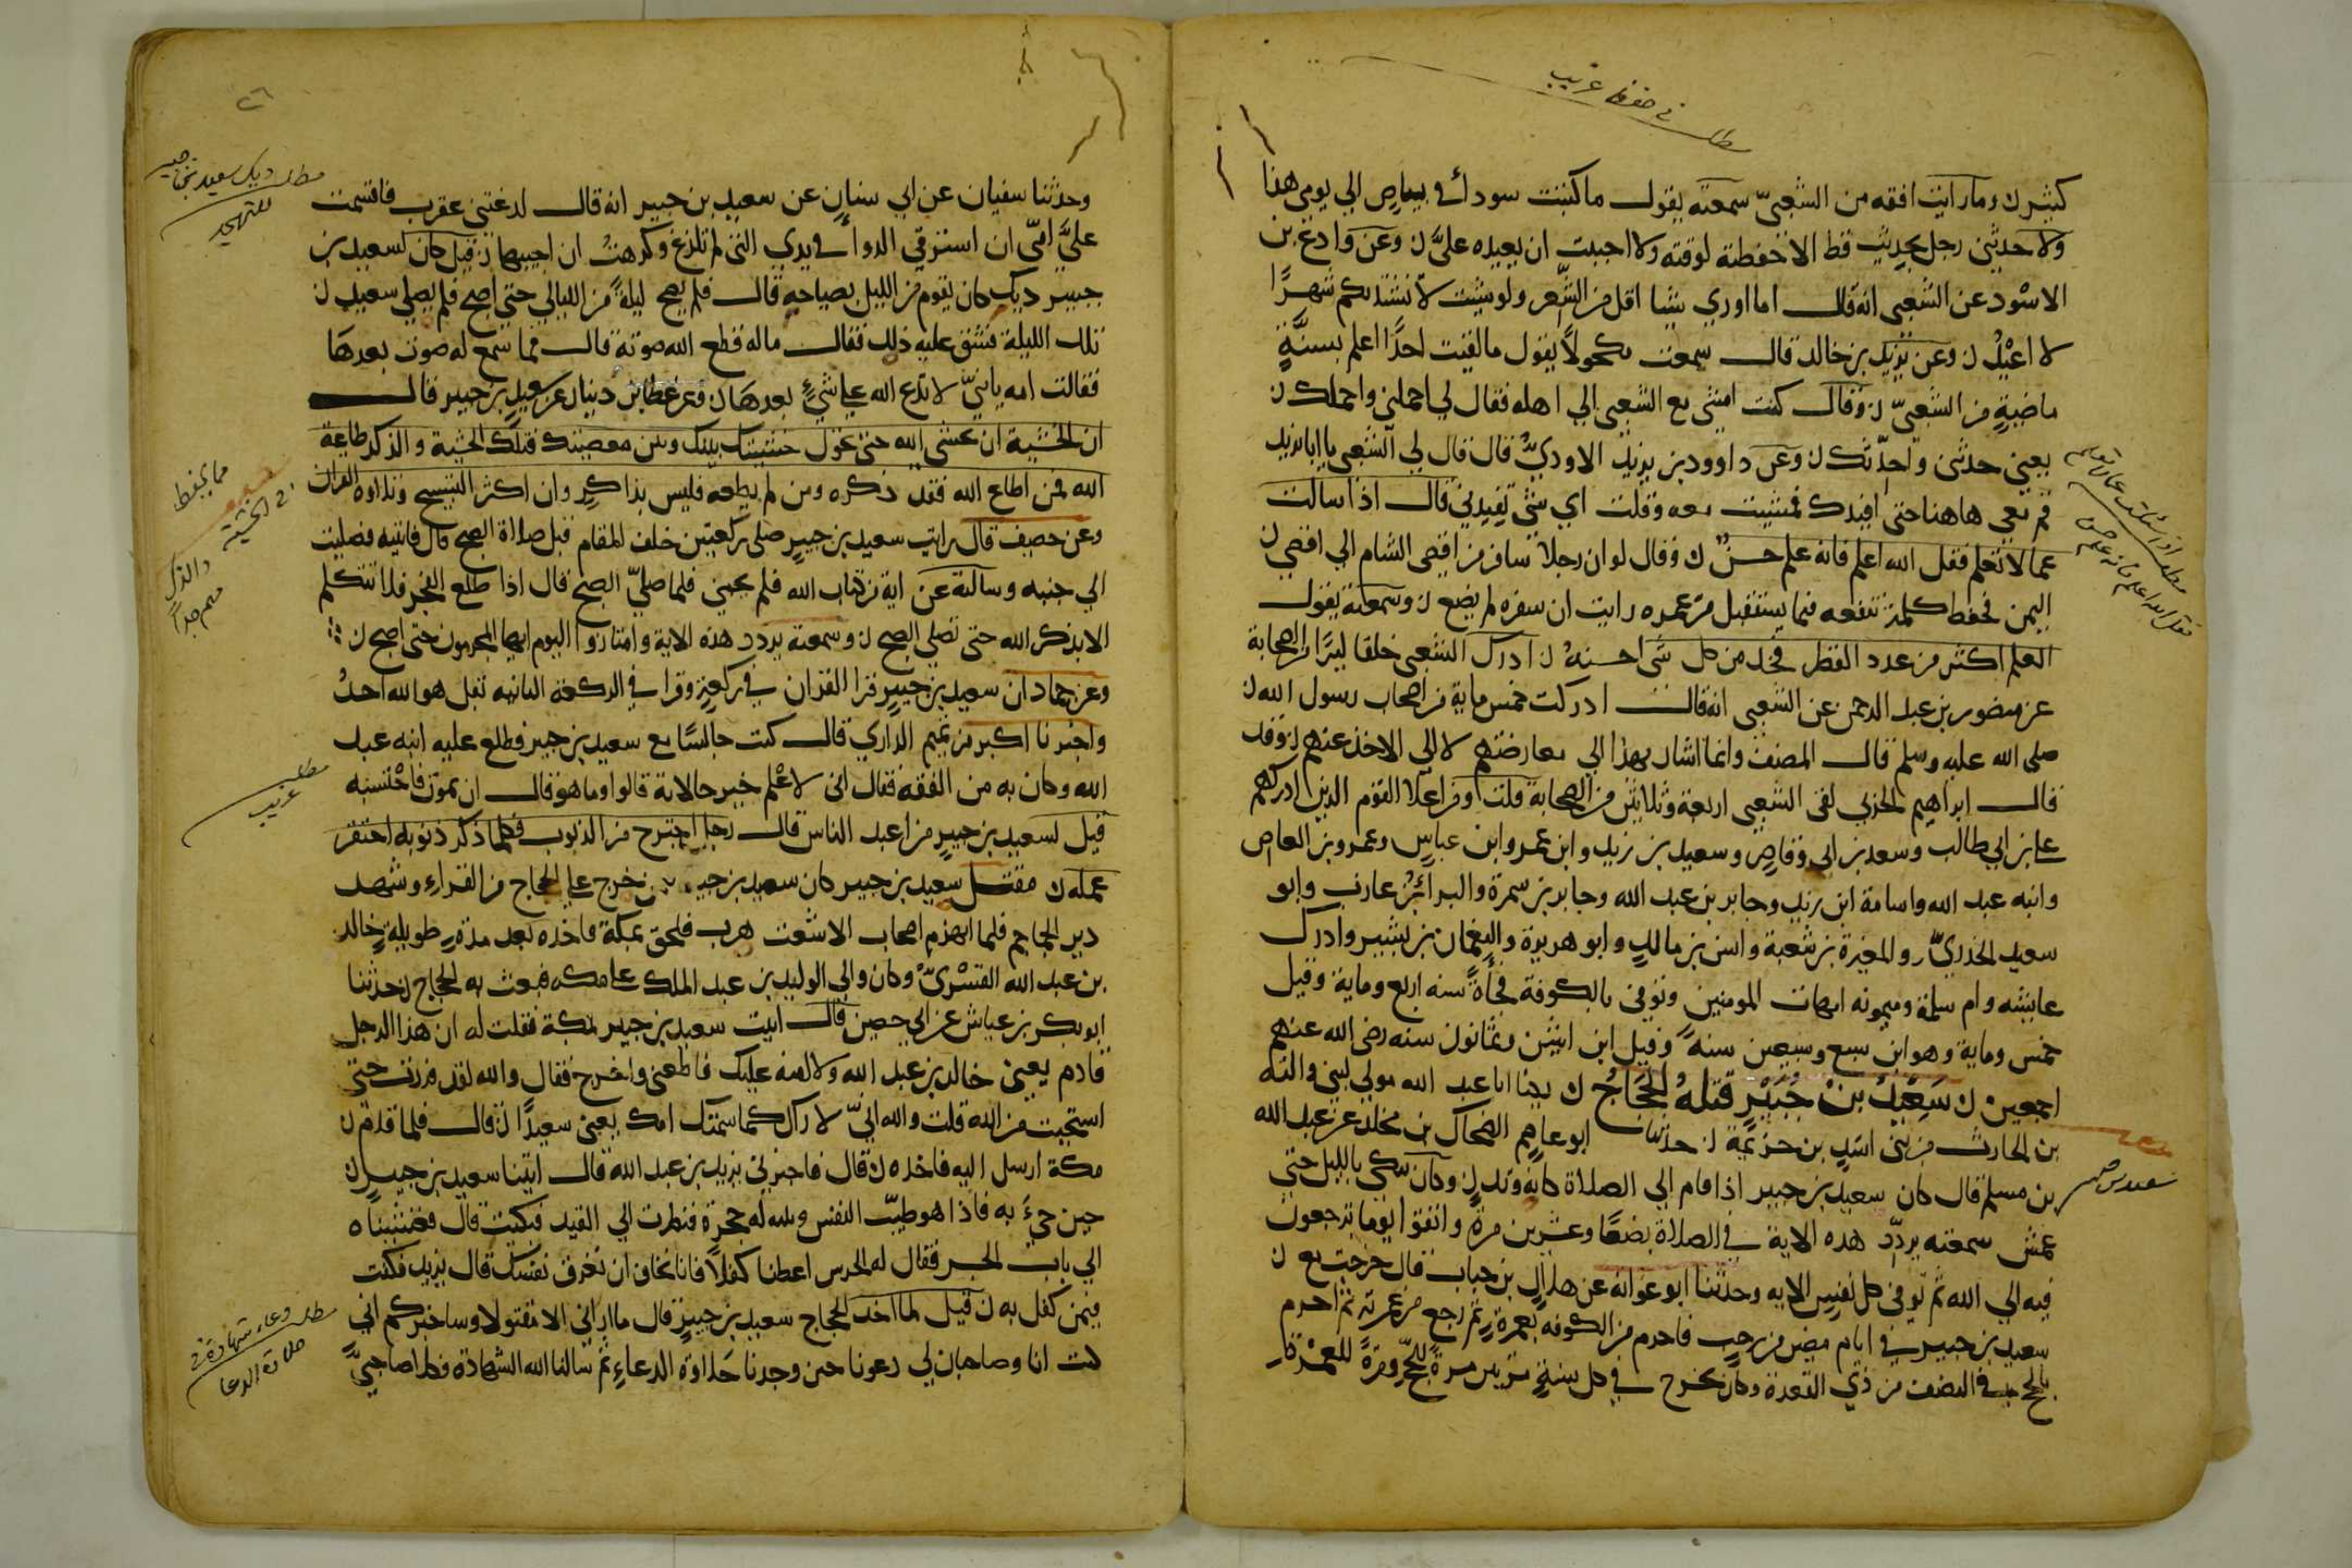 مطلب في حفظه غريب
كثير ن وما رايت افقه من الشعبيّ سمعته يقول ما كتبت سوداء في بياض الي يومي هذا
ولا حدثني رجل بحديث قط الا حفظته لوقته ولا احببت ان يعيده عليَّ ن وعن وادع بن
الاسْود عن الشعبي انه قال اما اروي شيا اقل من الشِّعر ولو شيت لأنشدتكم شهرًا
لا اعيْدُ ن وعن يزيد بن خالد قال سمعت مكحولًا يقول ما لقيت احدًا اعلم بسنَّةٍ
ماضيةٍ من الشعبيّ ن وقال كنت امشي مع الشعبي الي اهله فقال لي احملني واحملك ن
يعني حدثني واحدّثك ن وعن داوود بن يزيد الاوديُّ قال قال لي الشعبي يا ابا يزيد
قم معي هاهنا حتى افيدك فمشيت معه وقلت اي شي تفيدني قال اذا سالت
عما لا تعلم فقل الله اعلم فانه علم حسنٌ ن وقال لو ان رجلا سافر من اقصي الشام الي اقصي ن
اليمن فحفظ كلمة تنفعه فيما يستقبل من عمره رايت ان سفره لم يضع ن وسمعته يقول
العلم اكثر من عدد القطر فخذ من كل شي احسنهُ ن ادرك الشعبي خلقا كثيرًا من الصحابة
عن منصور بن عبد الرحمن عن الشعبي انه قال ادركت خمس ماية من اصحاب رسول الله ن
صلى الله عليه وسلم قال المصنف وانما اشار بهذا الي معارضتهم لا الي الاخذ عنهم ن وقد
قال ابراهيم الحربي لقي الشعبي اربعة وثلاثين من الصحابة قلت ومن اعلا القوم الذين ادركهم
علي بن ابي طالب وسعد بن ابي وقاص وسعيد بن زيد وابن عمر وابن عباسٍ وعمرو بن العاص
وابنه عبد الله واسامة ابن زيد وجابر بن عبد الله وجابر بن سمرة والبراءُ بن عازب وابو
سعيد الخدريُّ والمغيرة بن شعبة وانس بن مالكٍ وابو هريرة والنعمان بن بشير وادرك
عايشه وام سلمة وميمونه امهات المومنين وتوفي بالكوفة فجاةً سنه اربع وماية وقيل
خمس وماية وهو ابن سبع وسبعين سنهً وقيل ابن اثنين وثمانون سنه رضي الله عنهم
اجمعين ن سَعِيْدُ بْنُ جُبَيْرٍ قتلهُ الحَجَاجُ ن يكنا ابا عبد الله مولي لبني والبه
بن الحارث من بني اسَدٍ بن خزيمة ن حدثنا ابو عاصم الضحاك بن مخلد عن عبد الله
بن مسلم قال كان سعيد بن جبير اذا قام الي الصلاة كانه وتد ن وكان يبكي بالليل حتي
عمش سمعته يردّد هذه الاية في الصلاة بضعًا وعشرين مرة واتقوا يوما ترجعون
فيه الي الله ثم توفي كل نفسٍ الايه وحدثنا ابو عوانه عن هلال بن خباب قال خرجت مع ن
سعيد بن جبير في ايام مضين من رجب فاحرم من الكوفه بعمرةٍ ثم رجع من عمرته ثم احرم
بالحج في النصف من ذي القعدة وكان يخرج في كل سنةٍ مرتين مرة للحجّ ومرةً للعمْرة
مطلب اذا سئلت عما لا تعلم
فقل الله اعلم فانه علم حسن
سعيد بن جبير
٢٦
وحدثنا سفيان عن ابي سنانٍ عن سعيد بن جبير انه قال لدغتني عقرب فاقسمت
عليَّ امّي ان استرقي الدواء في يدي التي لم تلدغ وكرهتُ ان اجيبها ن قيل كان لسعيد بن
جبير ديك كان يقوم من الليل بصياحه قال فلم يصح ليلةً من الليالي حتى اصبح فلم يصلي سعيد ن
تلك الليلة فشق عليه ذلك فقال ما له قطع الله صوته قال فما سمع له صوت بعدهَا
فقالت امه يا بنيّ لا تدع الله علي شيءٍ بعدهَا ن وعن عطا بن دينار عن سعيد بن جبير قال
ان الخشية ان تخشى الله حتى تحول خشيتك بينك وبين معصيتك فتلك الخشية والذكر طاعة
الله فمن اطاع الله فقد ذكره ومن لم يطعه فليس بذاكرٍ وان اكثر التسبيح وتلاوة القران
وعن خصيف قال رايت سعيد بن جبيرٍ صلى ركعتين خلف المقام قبل صلاة الصبح قال فاتيته فصليت
الي جنبه وسالته عن اية من كتاب الله فلم يجبني فلما صليّ الصبح قال اذا طلع الفجر فلا تتكلم
الا بذكر الله حتى تصلي الصبح ن وسمعته يردد هذه الاية وامتازوا اليوم ايها المجرمون حتى اصبح ن
وعن حماد ان سعيد بن جبيرٍ قرا القران في ركعةٍ وقرا في الركعة الثانيه بقل هو الله احدُ
واخبرنا اكبر من تميم الداري قال كنت جالسًا مع سعيد بن جبير فطلع عليه ابنه عبد
الله وكان به من الفقه فقال اني لاعْلم خير حالاته قالوا وما هو قال ان يموت فاحْتسبه
قيل لسعيد بن جبيرٍ من اعبد الناس قال رجل اجترح من الذنوب فكلما ذكر ذنوبه احتقر
عمله ن مقتل سعيد بن جبير كان سعيد بن جبير من خرج علي الحجاج من القراء وشهد
دير الجماجم فلما انهزم اصحاب الاشعت هرب فلحق بمكة فاخذه بعد مدةٍ طويلةٍ خالد
بن عبد الله القسْريُّ وكان والي الوليد بن عبد الملك علي مكه فبعث به الحجاج ن حدثنا
ابو بكر بن عياش عن ابي حصين قال اتيت سعيد بن جبير بمكة فقلت له ان هذا الرجل
قادم يعني خالد بن عبد الله ولا امنه عليك فاطعني واخرج فقال والله لقد فررت حتى
استحييت من الله قلت والله انيّ لاراك كما سمتك امك يعني سعيدًا ن قال فلما قدم ن
مكة ارسل اليه فاخذه ن قال فاخبرني يزيد بن عبد الله قال اتينا سعيد بن جبيرٍ ن
حين جيءَ به فاذا هو طيّب النفس وبنيه له في حجرةٍ فنظرت الي القيد فبكيت قال فشيعناه
الي باب الجسر فقال له الحرس اعطنا كفلاً فانا نخاف ان تغرق نفسك قال يزيد فكنت
فيمن كفل به ن قيل لما اخد الحجاج سعيد بن جبيرٍ قال ما اراني الا مقتولا وساخبركم اني
كنت انا وصاحبان لي دعونا حين وجدنا حَلاوة الدعاءِ ثم سالنا الله الشهادة فكلا صاحبيَّ
مطلب ديك سعيد بن جبير
للتهجد
مما يحفظ
في الخشية والذكر
مهم جدًا
مطلب
غريب
مطلب دعاء شهادة في
حلاوة الدعا